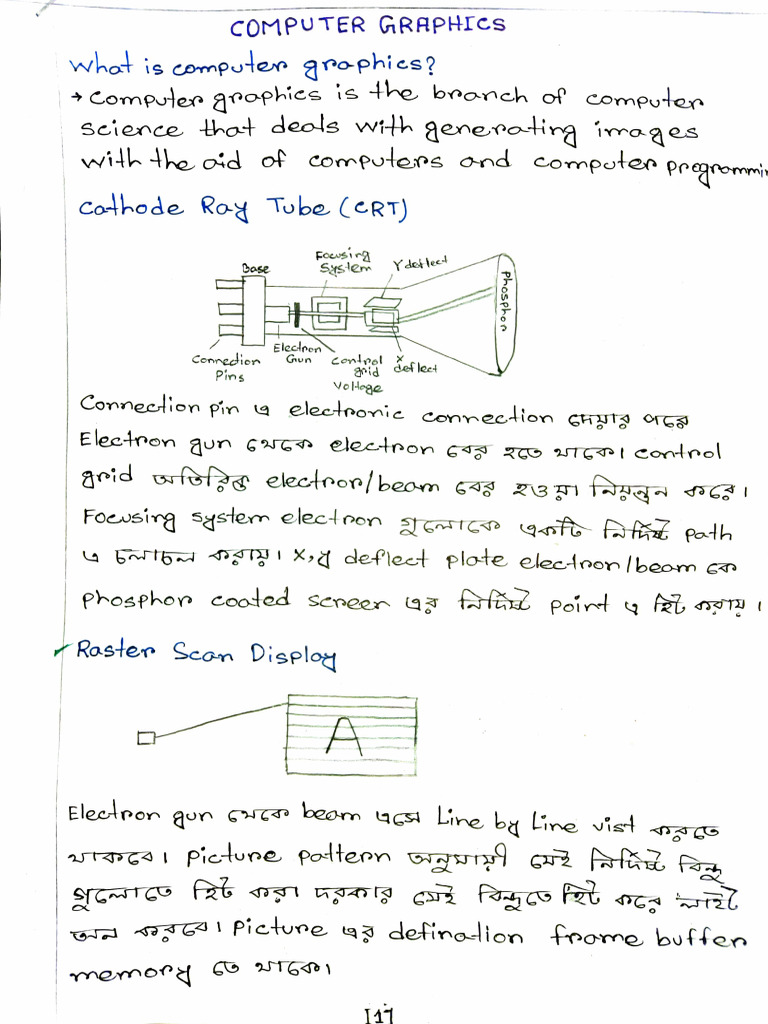 COMPUTER GRAPHICS
What is computer graphics?
→ Computer graphics is the branch of computer
science that deals with generating images
with the aid of computers and computer programmin
Cathode Ray Tube (CRT)
Base
Focusing
System
Y deflect
Phosphor
Connection
Pins
Electron
Gun
Control
grid
Voltage
X
deflect
Connection pin এ electronic connection দেয়ার পরে
Electron gun থেকে electron বের হতে থাকে। control
grid অতিরিক্ত electron/beam বের হওয়া নিয়ন্ত্রন করে।
Focusing system electron গুলোকে একটি নির্দিষ্ট path
এ চলাচল করায়। x,y deflect plate electron/beam কে
phosphor coated screen এর নির্দিষ্ট point এ হিট করায়।
Raster Scan Display
A
Electron gun থেকে beam এসে Line by Line vist করতে
থাকবে। picture pattern অনুযায়ী যেই নির্দিষ্ট বিন্দু
গুলোতে হিট করা দরকার সেই বিন্দুতে হিট করে লাইট
অন করবে। picture এর defination frame buffer
memory তে থাকে।
117